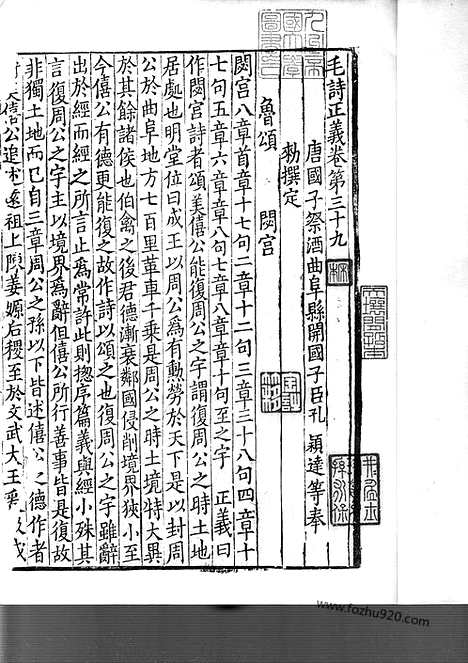 毛詩正義卷第三十九
唐國子祭酒曲阜縣開國子臣孔　穎達等奉
勑撰定
魯頌　閟宮
閟宮八章首章十七句二章十二句三章三十八句四章十
七句五章六章章八句七章八章章十句至之宇　正義曰
作閟宮詩者頌美僖公能復周公之宇謂復周公之時土地
居處也明堂位曰成王以周公為有勳勞於天下是以封周
公於曲阜地方七百里革車千乗是周公之時土境特大異
於其餘諸侯也伯禽之後君德漸衰鄰國侵削境界狹小至
今僖公有德更能復之故作詩以頌之也復周公之宇雖辭
出於經而經之所言止為常許此則揔序篇義與經小殊其
言復周公之宇主以境界為辭但僖公所行善事皆是復故
非獨土地而已自三章周公之孫以下皆述僖公之德作者
公追述遠祖上陳姜嫄后稷至於文武大王
www.fozhu920.com